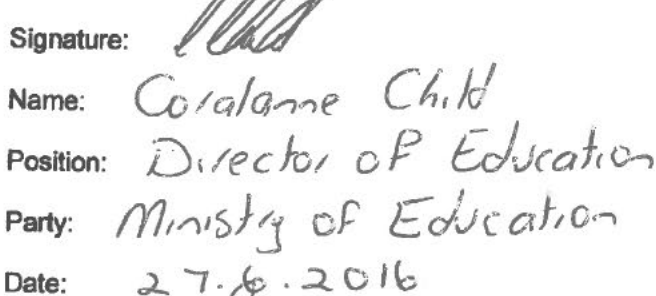 Signature:
Name: Coralanne Child
Position: Director of Education
Party: Ministry of Education
Date: 27.6.2016